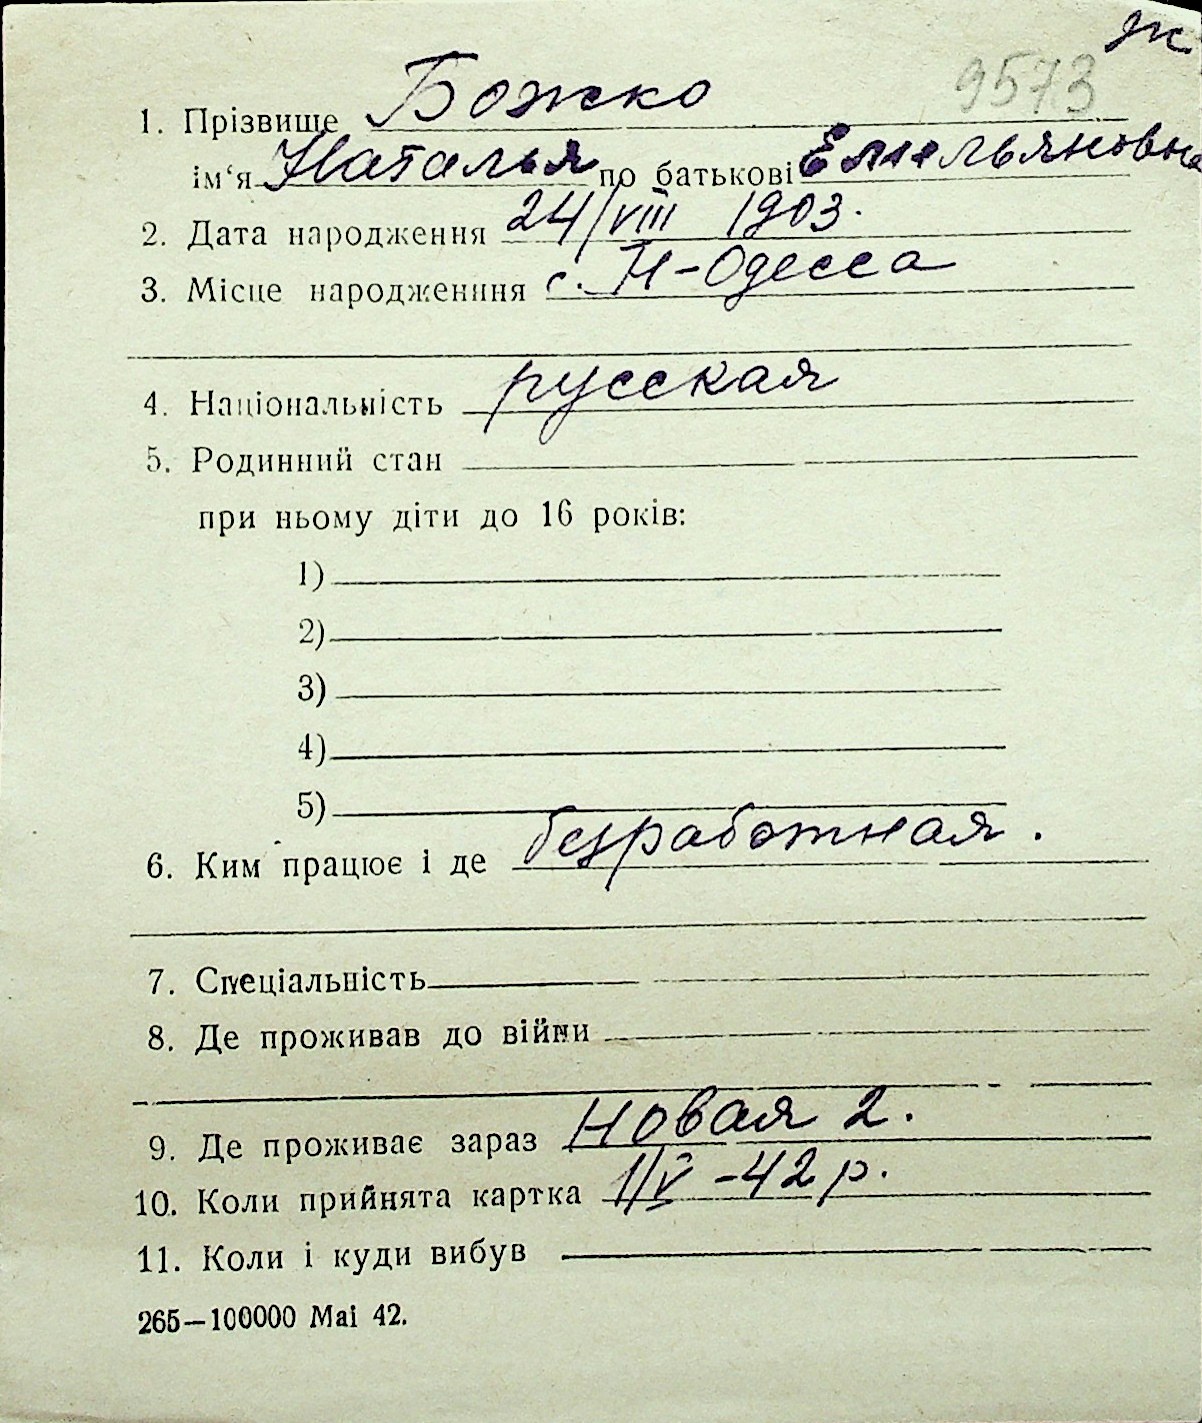 ж
9573
1. Прізвище Божко
ім‘я Наталья по батькові Емельяновна
2. Дата народження 24/VIII 1903.
3. Місце народженння с. Н-Одесса
4. Національність русская
5. Родинний стан
при ньому діти до 16 років:
1)
2)
3)
4)
5)
6. Ким працює і де безработная.
7. Спеціальність
8. Де проживав до війни
9. Де проживає зараз Новая 2.
10. Коли прийнята картка 1/V -42 р.
11. Коли і куди вибув
265—100000 Mai 42.